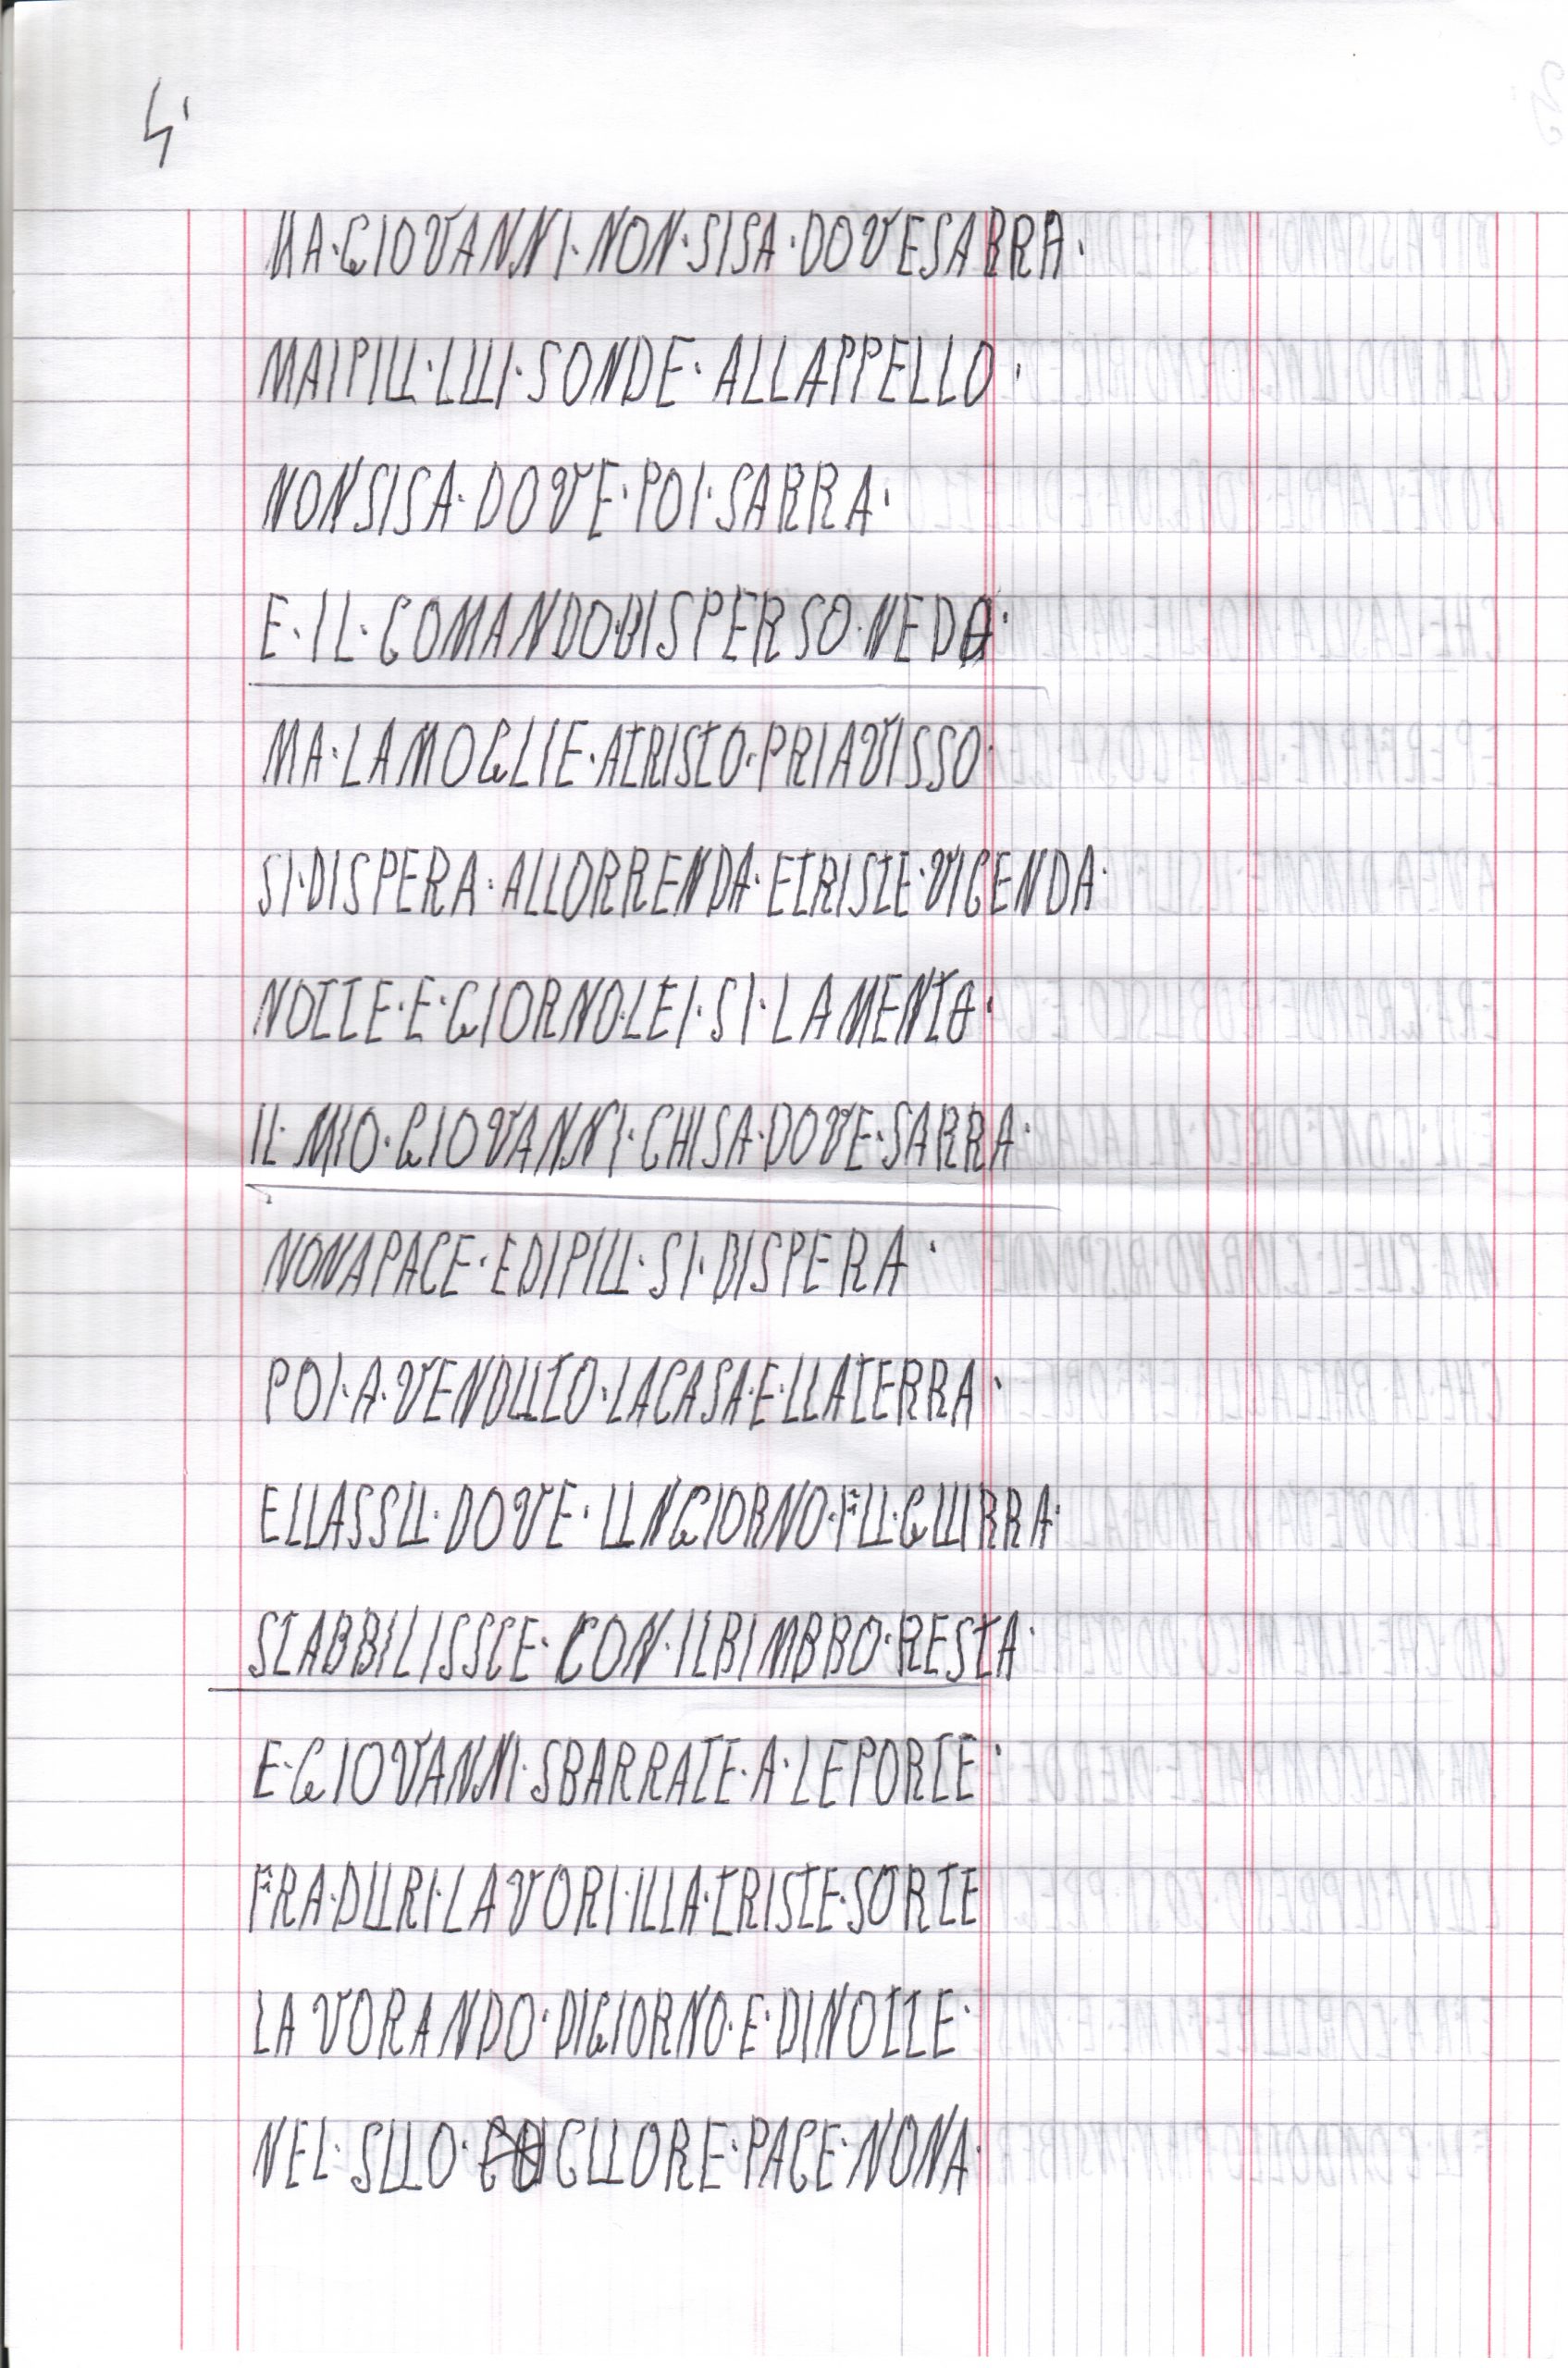 4'
MA·GIOVANNI·NON·SISA·DOVESARRA·
MAIPIU·LUI·SONDE·ALLAPPELLO·
NONSISA·DOVE·POI·SARRA·
E·IL·COMANDO·DISPERSO·NEDA·
MA·LAMOGLIE·ATRISTO·PRIAVISSO·
SI·DISPERA·ALLORRENDA·ETRISTE·VICENDA·
NOTTE·E·GIORNO·LEI·SI·LAMENTA·
IL·MIO·GIOVANNI·CHISA·DOVE·SARRA·
NONAPACE·EDIPIU·SI·DISPERA·
POI·A·VENDUTO·LACASA·E·LLATERRA·
ELLASSU·DOVE·UNGIORNO·FU·GUIRRA·
STABBILISSCE·CON·ILBIMBBO·RESTA·
E·GIOVANNI·SBARRATE·A·LEPORTE·
FRA·DURI·LAVORI·ILLA·TRISTE·SORTE
LAVORANDO·DIGIORNO·E·DINOTTE·
NEL·SUO·CUORE·PACE·NONA·